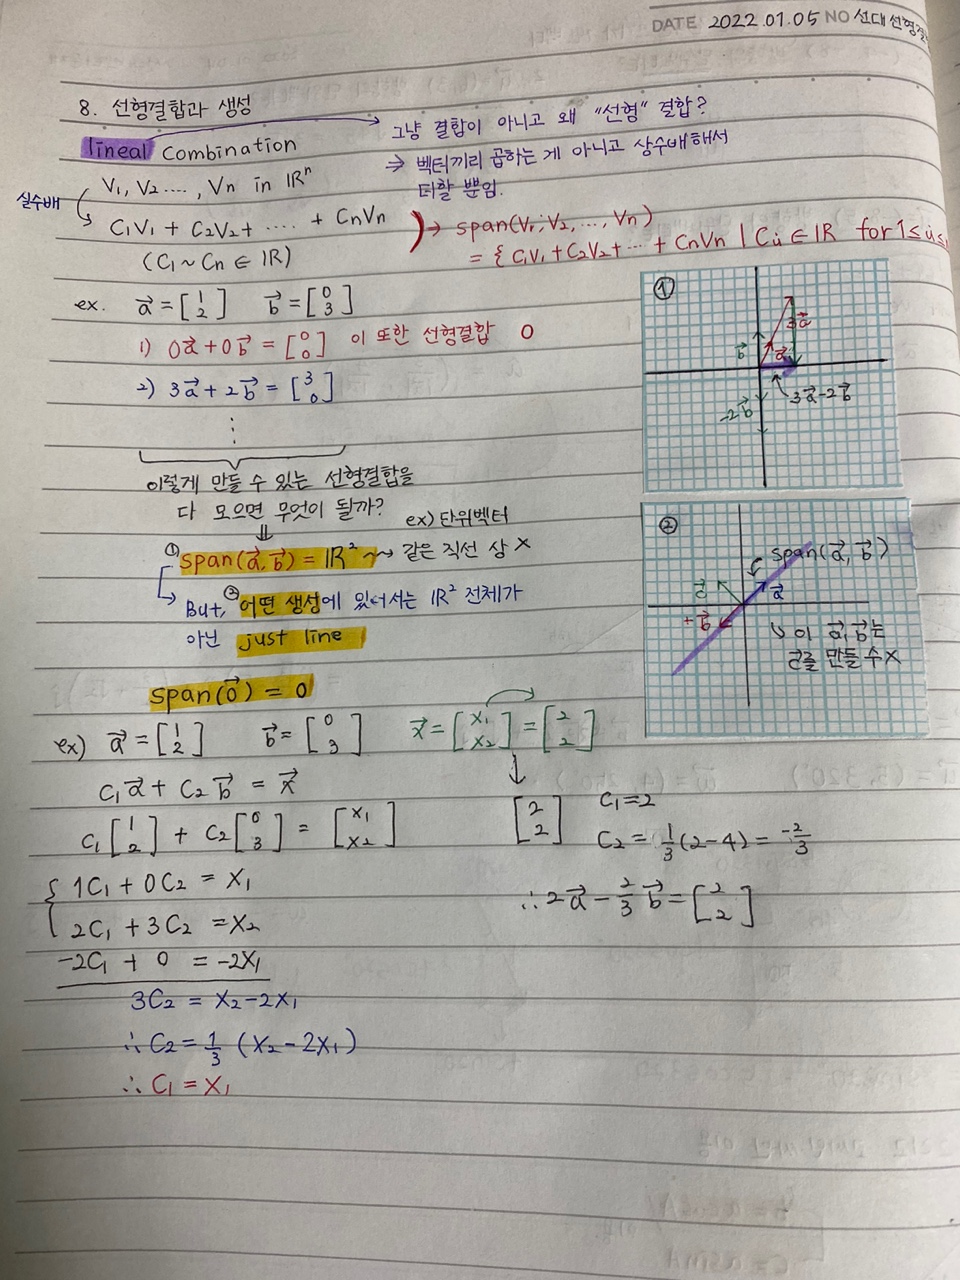 DATE 2022.01.05 NO 선대 선형결
8. 선형결합과 생성
lineal combination
그냥 결합이 아니고 왜 "선형" 결합?
⇒ 벡터끼리 곱하는 게 아니고 상수배해서
더할 뿐임.
V1, V2 ...., Vn in ℝⁿ
실수배
C1V1 + C2V2 + ..... + CnVn
(C1 ~ Cn ∈ ℝ)
→ span(V1, V2, ..., Vn)
= { C1V1 + C2V2 + ... + CnVn | Ci ∈ ℝ for 1≤i≤
ex. a⃗ = [1 2] b⃗ = [0 3]
1) 0a⃗ + 0b⃗ = [0 0] 이 또한 선형결합 0
2) 3a⃗ + 2b⃗ = [3 0]
⋮
이렇게 만들 수 있는 선형결합을
다 모으면 무엇이 될까?
⇓
ex) 단위벡터
① span(a⃗, b⃗) = ℝ² ~→ 같은 직선 상 X
↳ But, ② 어떤 생성에 있어서는 ℝ² 전체가
아닌 just line
span(0⃗) = 0
①
3a⃗
b⃗
a⃗
-2b⃗
3a⃗-2b⃗
②
span(a⃗, b⃗)
c⃗
a⃗
b⃗
↳ 이 a⃗, b⃗는
c⃗를 만들 수 X
ex) a⃗ = [1 2] b⃗ = [0 3] x⃗ = [x1 x2] = [2 2]
C1a⃗ + C2b⃗ = x⃗
C1[1 2] + C2[0 3] = [x1 x2]
{ 1C1 + 0C2 = x1
2C1 + 3C2 = x2
-2C1 + 0 = -2x1
3C2 = x2 - 2x1
∴ C2 = 1/3 (x2 - 2x1)
∴ C1 = x1
↓
[2 2] C1 = 2
C2 = 1/3 (2-4) = -2/3
∴ 2a⃗ - 2/3 b⃗ = [2 2]